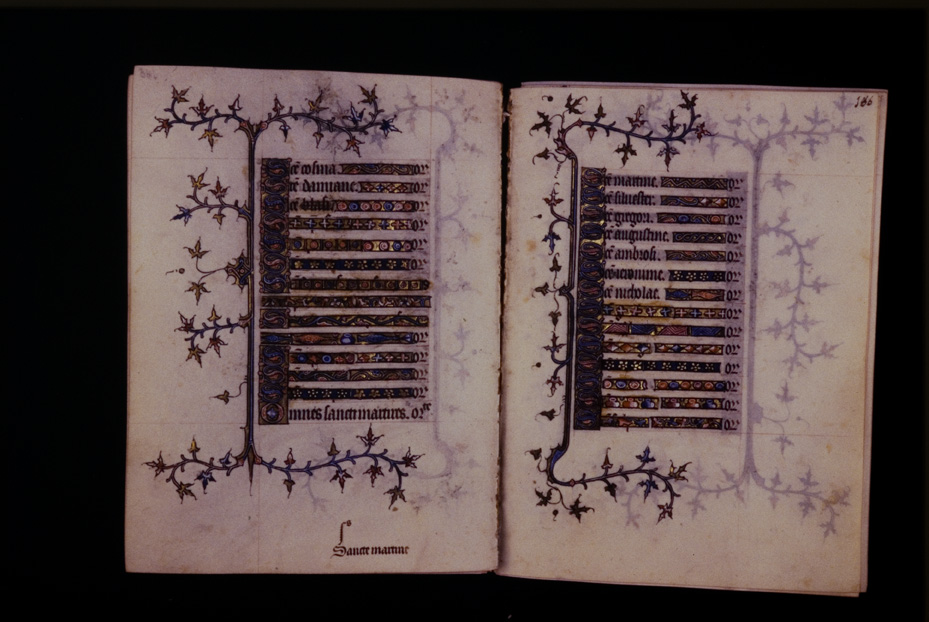 Scē cosma. or̄
Scē damiane. or̄
Scē blasi or̄
or̄
or̄
or̄
or̄
or̄
or̄
or̄
Omnes sancti martires. or̄
Sancte martine
186
Scē martine. or̄
Scē siluester. or̄
Scē gregori. or̄
Scē augustine. or̄
Scē ambrosi. or̄
Scē ieronime. or̄
Scē nicholae. or̄
or̄
or̄
or̄
or̄
or̄
or̄
or̄